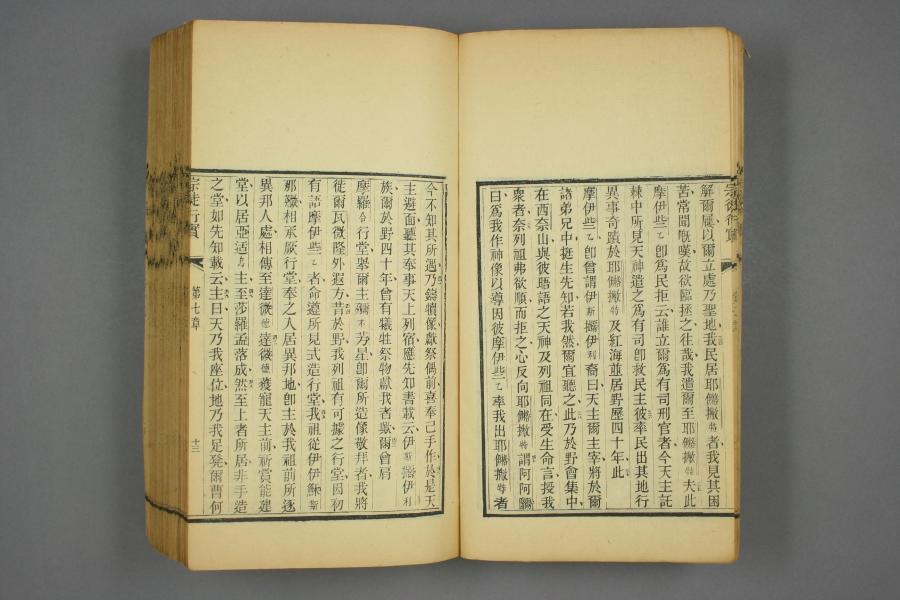 解爾屨以爾立處乃聖地我民居耶𨭎撤特者我見其困
苦常聞慨嘆故欲臨拯之往哉我遣爾至耶𨭎撤特夫此
摩伊些乙卽爲民拒云誰立爾爲有司刑官者今天主託
棘中所見天神遣之爲有司卽救民主彼率民出其地行
異事奇蹟於耶𨭎撤特及紅海並居野歷四十年此
摩伊些乙卽曾謂伊斯擩伊利裔曰天主爾主宰將於爾
諸弟兄中挺生先知若我然爾宜聽之此乃於野會集中
在西奈山與彼晤語之天神及列祖同在受生命言授我
衆者奈列祖弗欲順而拒之心反向耶𨭎撤特謂阿阿
曰爲我作神像以導因彼摩伊些乙率我出耶𨭎撤特者
宗徒行實
今不知其所遇乃鑄犢像獻祭偶前喜奉己手作於是天
主避面聽其奉事天上列宿應先知書載云伊斯擩伊利
族爾於野四十年曾有犧牲祭物獻我者歟爾曾肩
摩羅合行堂擧爾主芳星卽爾所造像敬拜者我將
徙爾瓦微隆外遐方昔於野我列祖有可據之行堂因初
有語摩伊些乙者命遵所見式造行堂我祖從伊伊穌斯
那殿相承厥行堂奉之人居異邦地卽主於我祖前所逐
異邦人處相傳至達微德達微德獲寵天主前祈賞能建
堂以居亞活主至莎羅孟落成然至上者所居非手造
之堂如先知載云主曰天乃我座位地乃我足凳爾曹何
宗徒行實
第七章
十三